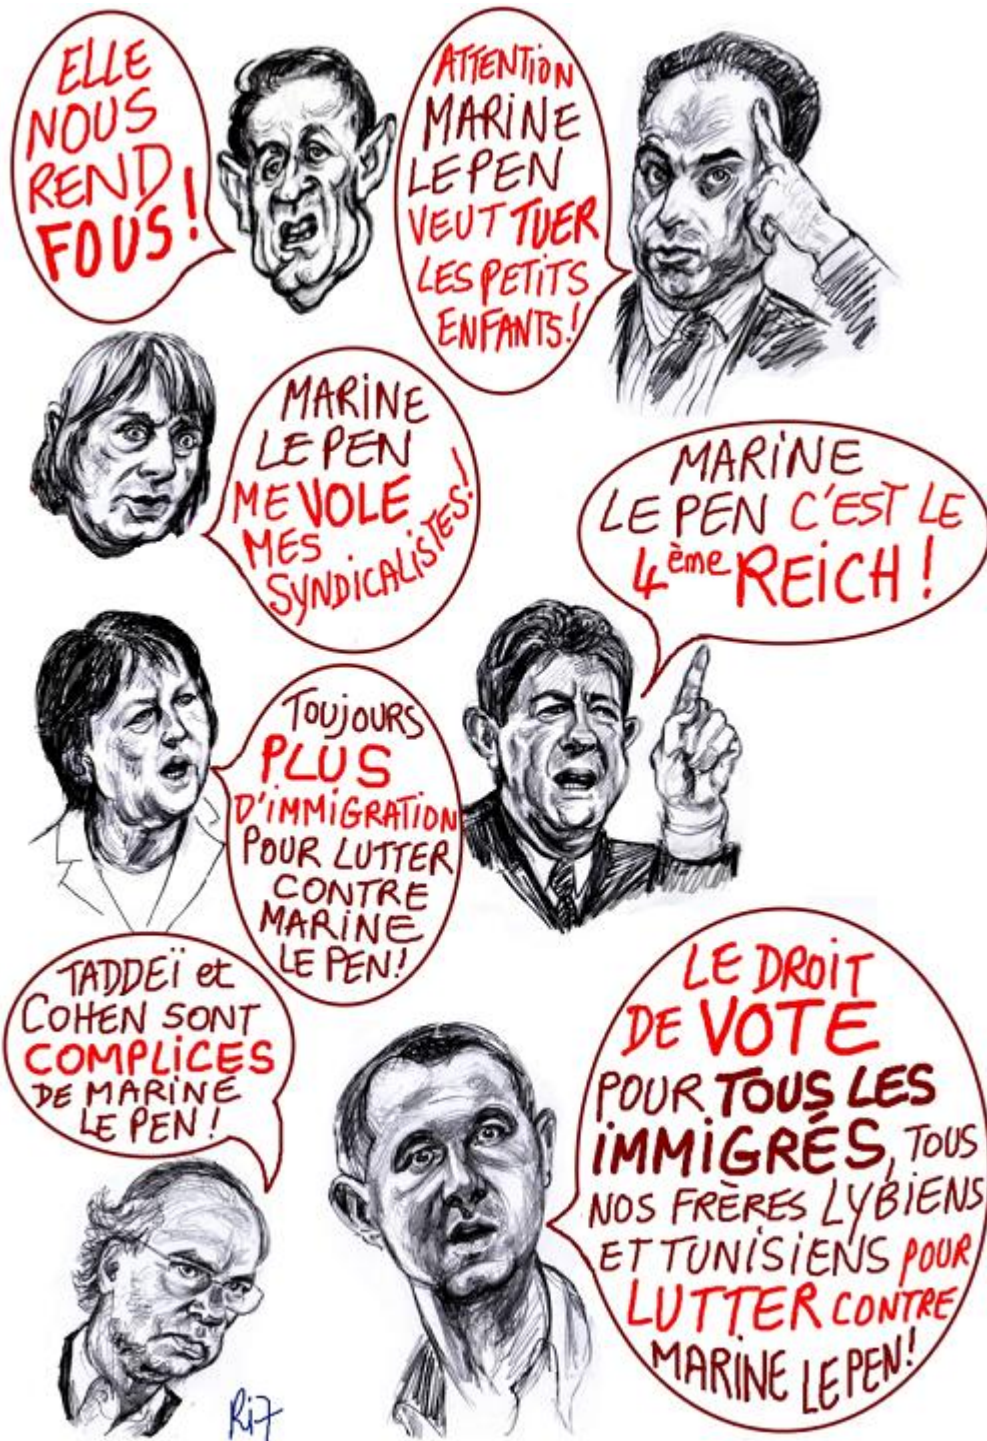 ELLE
NOUS
REND
FOUS!
ATTENTION
MARINE
LE PEN
VEUT TUER
LES PETITS
ENFANTS!
MARINE
LE PEN
ME VOLE
MES
SYNDICALISTES!
MARINE
LE PEN C'EST LE
4ème REICH!
TOUJOURS
PLUS
D'IMMIGRATION
POUR LUTTER
CONTRE
MARINE
LE PEN!
TADDEÏ et
COHEN SONT
COMPLICES
DE MARINE
LE PEN!
LE DROIT
DE VOTE
POUR TOUS LES
IMMIGRÉS, TOUS
NOS FRÈRES LYBIENS
ET TUNISIENS POUR
LUTTER CONTRE
MARINE LE PEN!
Ri7